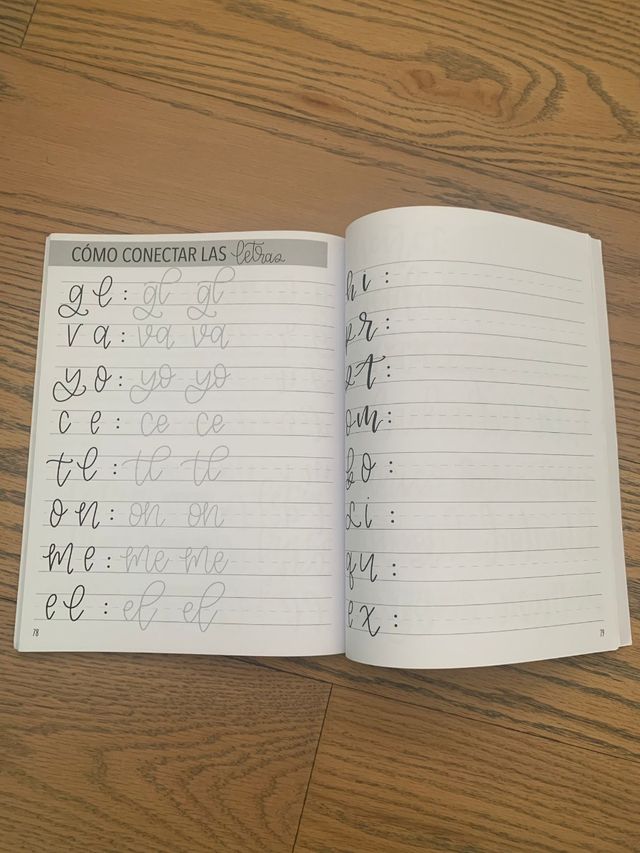 CÓMO CONECTAR LAS letras
g l : gl gl
v a : va va
y o : yo yo
c e : ce ce
t l : tl tl
o n : on on
m e : me me
e l : el el
78
h i :
p r :
s t :
o m :
b o :
l i :
q u :
e x :
79